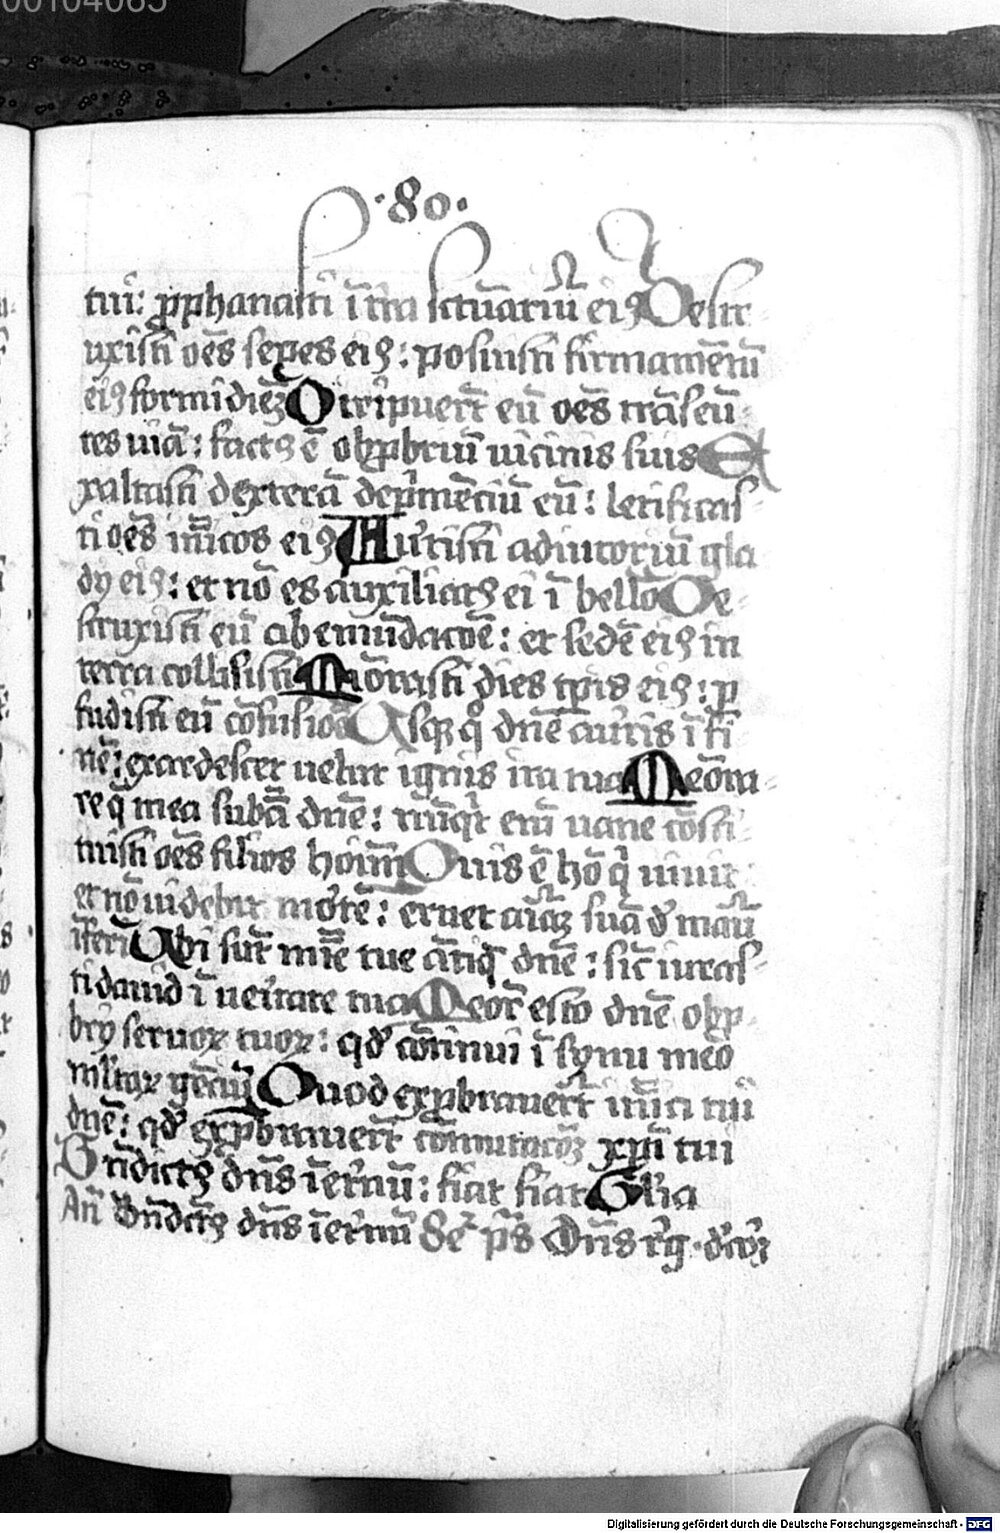 00104065
·80·
tui: ꝓphanasti ī trā sctūariū eiꝰ Destr-
uxisti oēs sepes eiꝰ: posuisti firmamētū
eiꝰ formidiēꝫ Diripuert̄ eū oēs trāseū-
tes uiā: factꝰ ē obꝓbriū uicinis suis E
xaltasti dexterā depͥmēciū eū: letificas-
ti oēs inīicos eiꝰ Auͬtisti adiutoriū gla
dij eiꝰ: et nō es auxiliatꝰ ei ī bello De-
struxisti eū ab emūdacōe: et sedē eiꝰ in
terra collisisti Miōrasti dies tp̄is eiꝰ: ꝑ
fudisti eū cōfusiōe Usqꝫ qͦ dnē auͬtis ī fi
nē: exardescet uelut ignis ira tua Memōra-
re q̄ mea subā dnē: nūqͥt eni uane cōsti-
tuisti oēs filios hoīm Quis ē hō qͥ uiuit
et nō uidebit mortē: eruet aīaꝫ suā de māu
īferi Ubi sūt mīe tue ātiq̄ dnē: sic iuras-
ti dauid ī ueritate tua Memor esto dnē obꝓ-
brij seruoꝝ tuoꝝ: qd̓ cōtinui ī synu meo
mltaꝝ gēciū Quod exꝓbrauert̄ inīici tui
dnē: qd̓ exꝓbrauert̄ cōmutacōꝫ xp̄i tui
Bn̄dictꝰ dn̄s ī eternū: fiat fiat Gl̓ia
Añ Bn̄dctꝰ dn̄s ī eternū Seͨ ps̄ Dn̄s rͤg· dͤcoꝝ
Digitalisierung gefördert durch die Deutsche Forschungsgemeinschaft - DFG